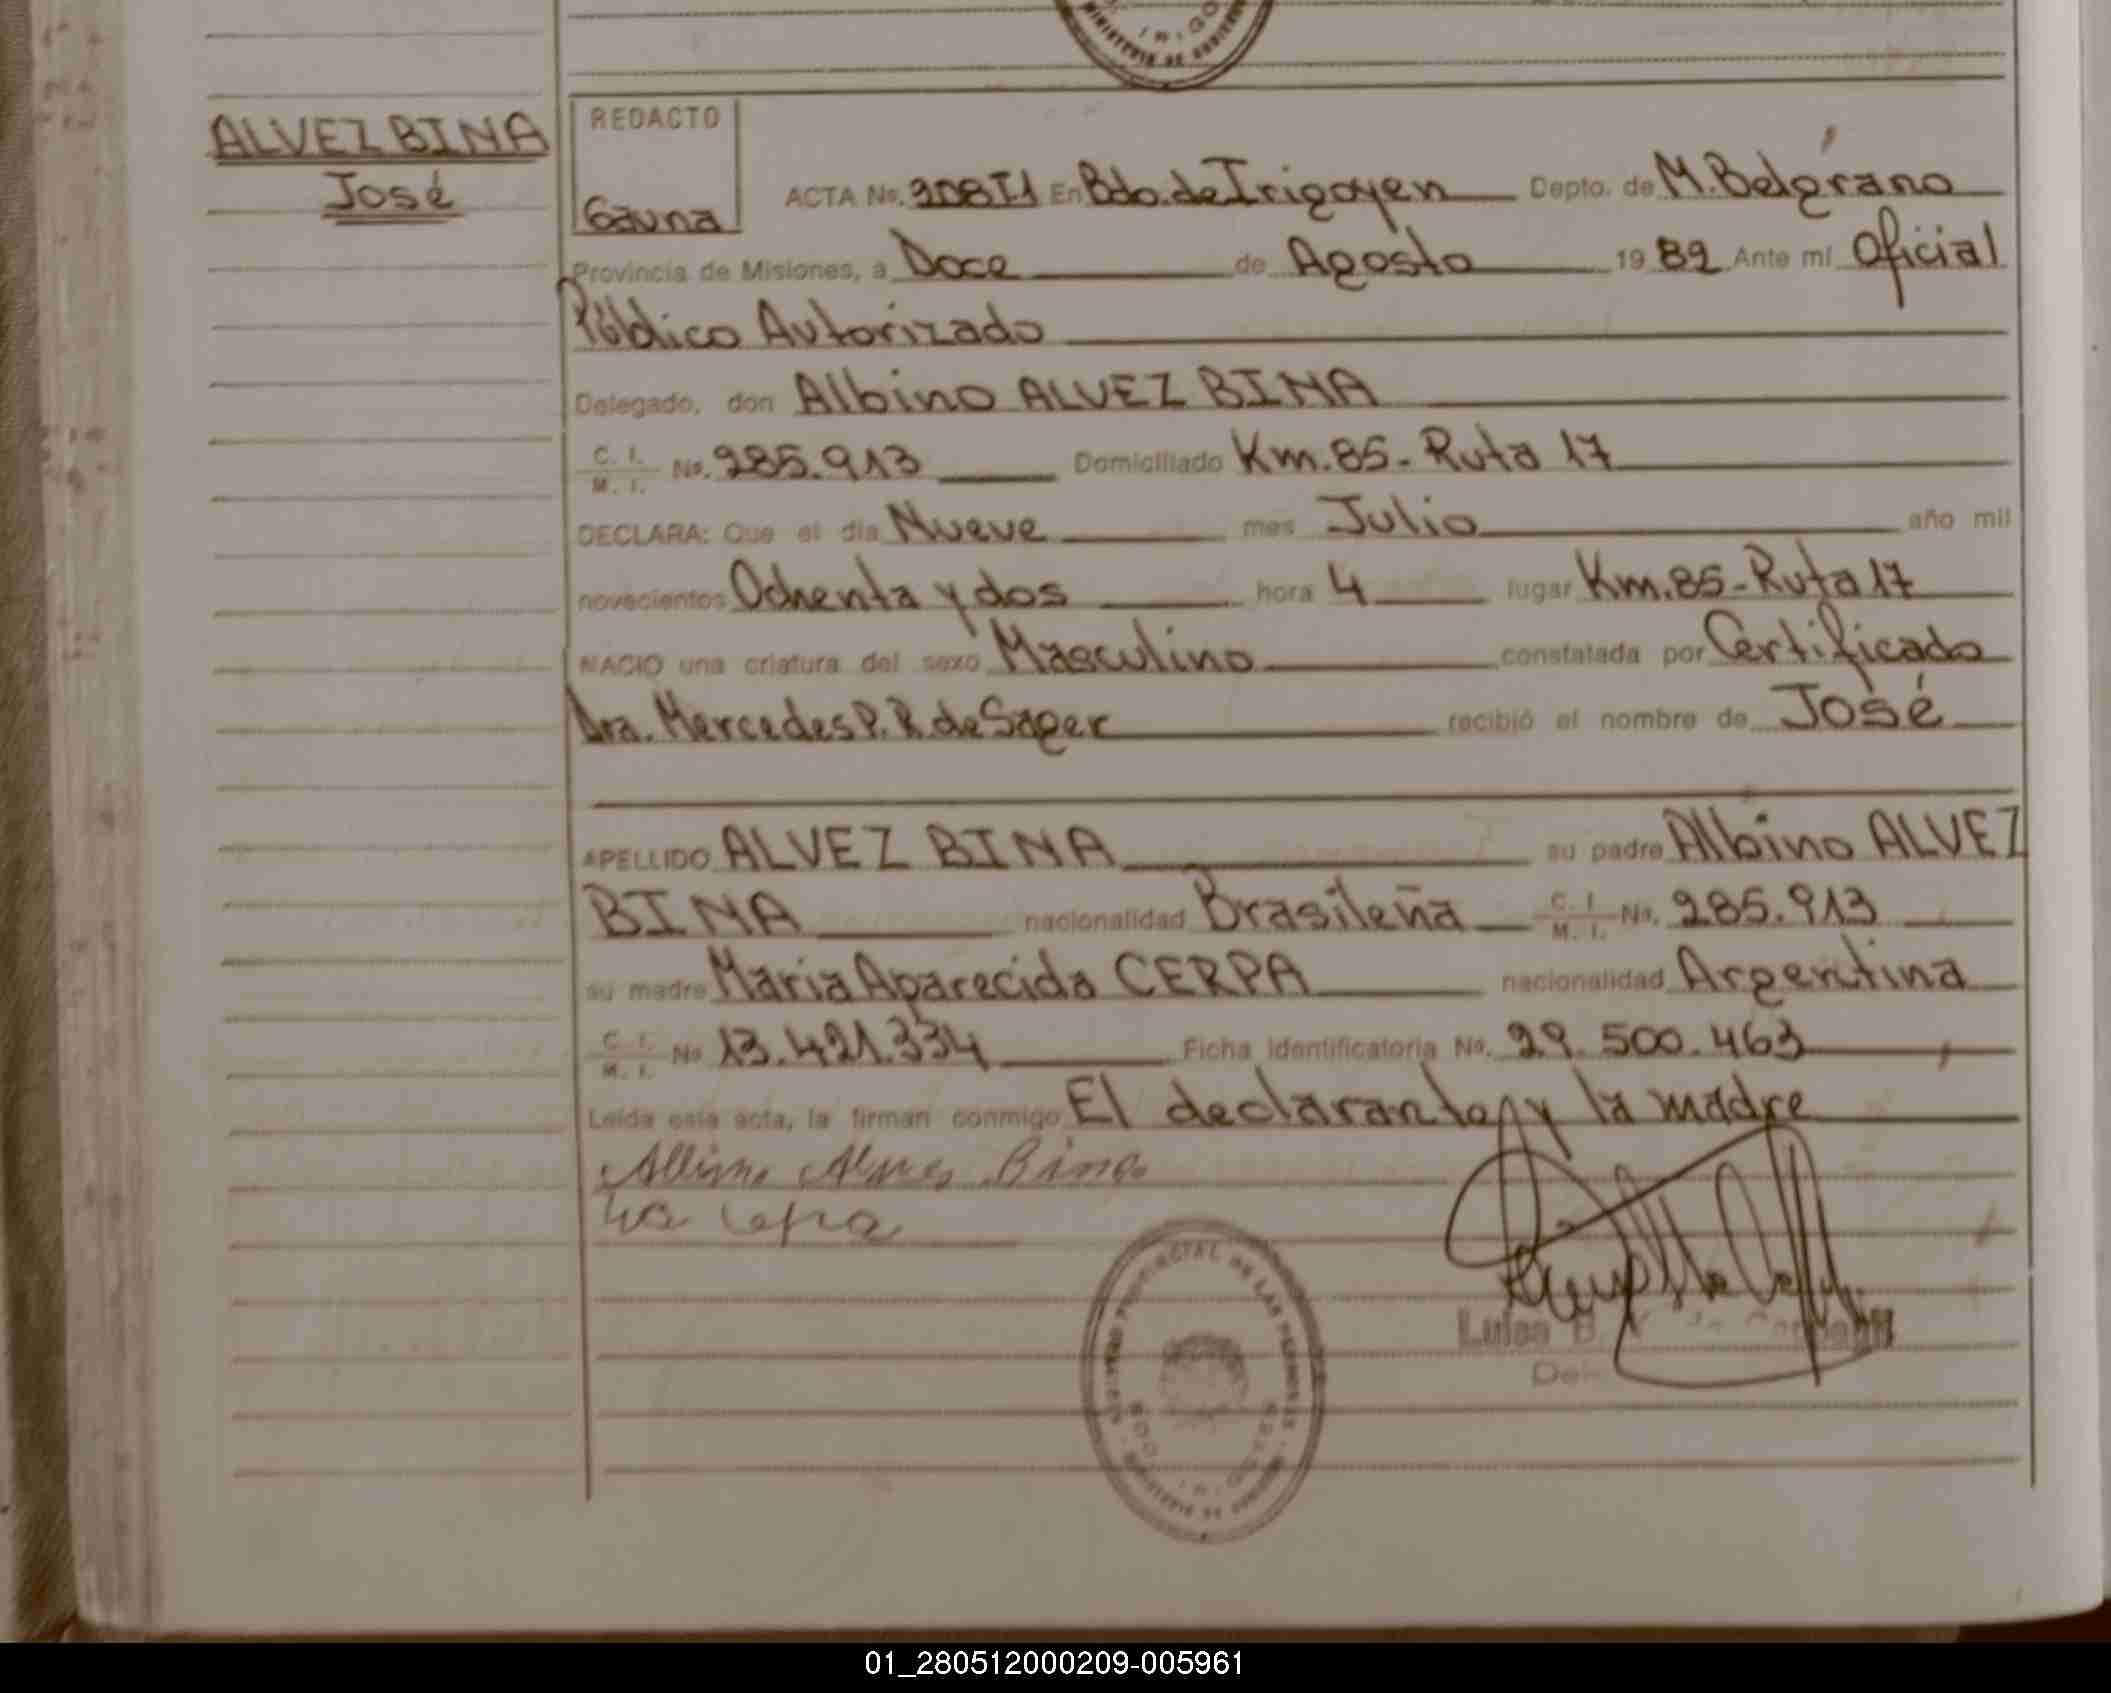 MINISTERIO DE GOBIERNO
ALVEZ BINA
José
REDACTO
Gauna
ACTA No. 208T1 En Bdo. de Irigoyen Depto. de M. Belgrano
Provincia de Misiones, a Doce de Agosto 19 82 Ante mí Oficial
Público Autorizado
Delegado, don Albino ALVEZ BINA
C. I. M. I. No. 285.913 Domiciliado Km. 85 - Ruta 17
DECLARA: Que el día Nueve mes Julio año mil
novecientos Ochenta y dos hora 4 lugar Km. 85 - Ruta 17
NACIO una criatura del sexo Masculino constatada por Certificado
Dra. Mercedes P. R. de Sager recibió el nombre de José
APELLIDO ALVEZ BINA su padre Albino ALVEZ
BINA nacionalidad Brasileña C. I. M. I. No. 285.913
su madre Maria Aparecida CERPA nacionalidad Argentina
C. I. M. I. No 13.421.334 Ficha identificatoria No. 29.500.463
Leída esta acta, la firman conmigo El declarante y la madre
Albino Alves Bina
Luisa B.
PROVINCIAL DE LAS PERSONAS
01_280512000209-005961